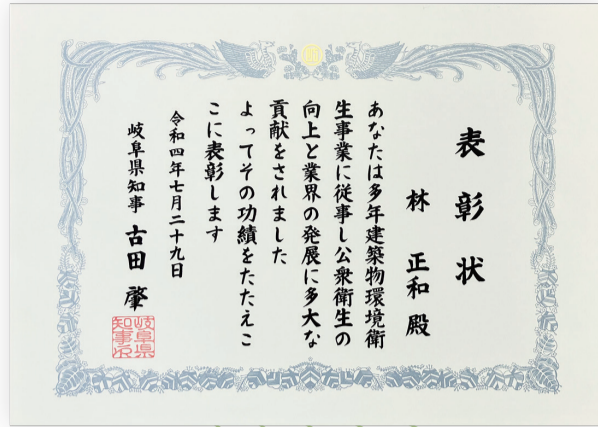 表彰状
林 正和 殿
あなたは多年建築物環境衛
生事業に従事し公衆衛生の
向上と業界の発展に多大な
貢献をされました
よってその功績をたたえこ
こに表彰します
令和四年七月二十九日
岐阜県知事 古田 肇
岐阜県
知事之印